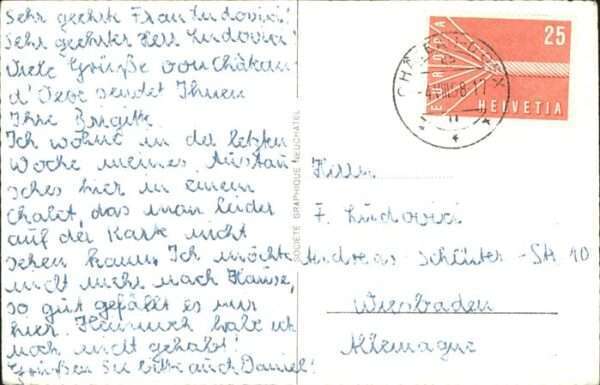 Sehr geehrte Frau Ludovici!
Sehr geehrter Herr Ludovici!
Viele Grüße von Château
d'Oex sendet Ihnen
Ihre Brigitte.
Ich wohne in der letzten
Woche meines Austau
sches hier in einem
Chalet, das man leider
auf der Karte nicht
sehen kann. Ich möchte
nicht mehr nach Hause,
so gut gefällt es mir
hier. Heimweh habe ich
noch nicht gehabt!
Grüßen Sie bitte auch Daniel!
SOCIÉTÉ GRAPHIQUE NEUCHATEL
EUROPA
25
HELVETIA
CHATEAU-D'OEX
Herrn
F. Ludovici
Andreas-Schlüter-Str 10
Wiesbaden
Allemagne